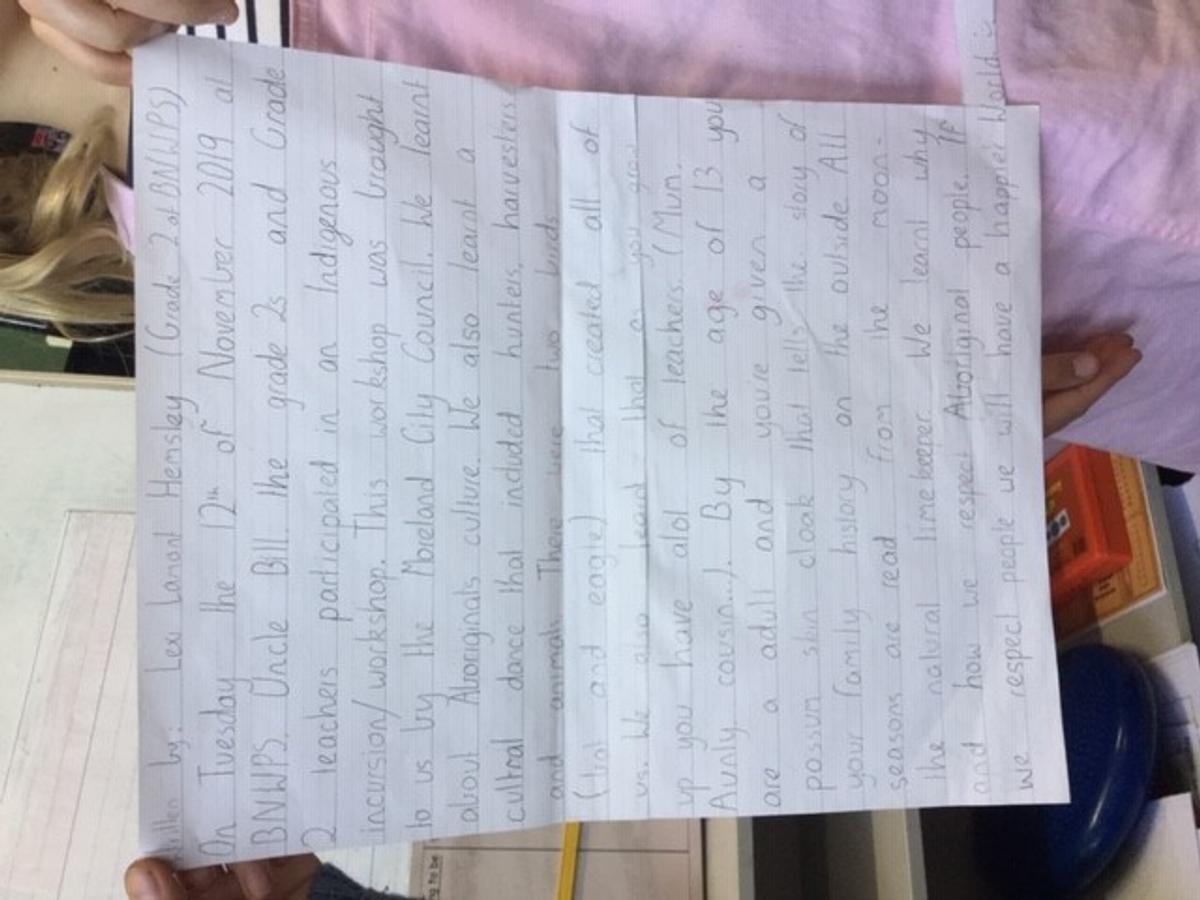 Written by: Lexi Lamont Hemsley (Grade 2 at BN(W)PS)
On Tuesday the 12th of November 2019 at
BNWPS, Uncle Bill the grade 2s and Grade
2 teachers participated in an Indigenous
incursion/workshop. This workshop was brought
to us by the Moreland City Council. We learnt
about Aboriginals culture. We also learnt a
cultral dance that included hunters, harvesters
and animals. There were two birds
(bat and eagle) that created all of
us. We also learnt that as you grow
up you have alot of teachers. (Mum.
Aunty, cousin...). By the age of 13 you
are a adult and you're given a
possum skin cloak that tells the story of
your family history on the outside All
seasons are read from the moon-
the natural timekeeper We learnt why
and how we respect Aboriginal people. If
we respect people we will have a happier World :)